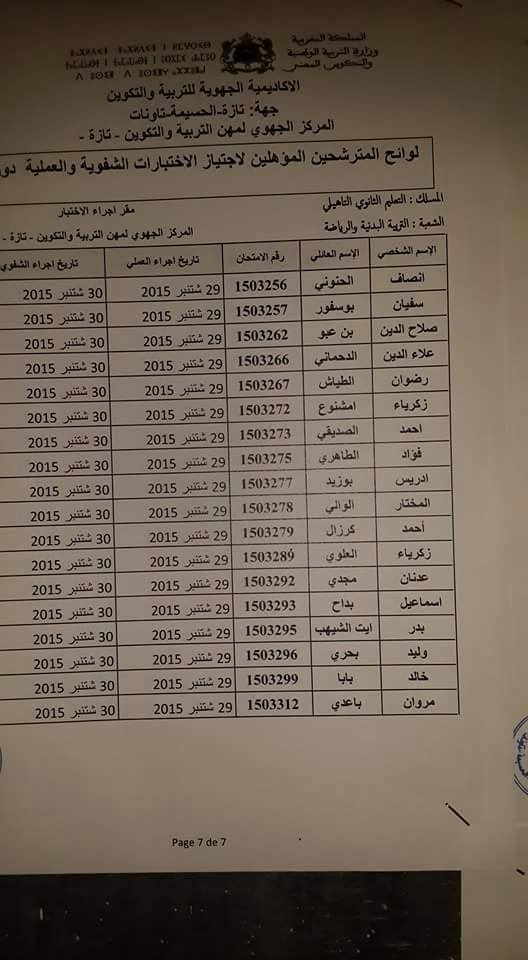 المملكة المغربية
وزارة التربية الوطنية
والتكوين المهني
الاكاديمية الجهوية للتربية والتكوين
جهة: تازة-الحسيمة-تاونات
المركز الجهوي لمهن التربية والتكوين - تازة -
لوائح المترشحين المؤهلين لاجتياز الاختبارات الشفوية والعملية دو
المسلك : التعليم الثانوي التاهيلي
مقر اجراء الاختبار
الشعبة : التربية البدنية والرياضة
المركز الجهوي لمهن التربية والتكوين - تازة -
الإسم الشخصي الإسم العائلي رقم الامتحان تاريخ اجراء العملي تاريخ اجراء الشفوي
انصاف الحنوني 1503256 29 شتنبر 2015 30 شتنبر 2015
سفيان بوسفور 1503257 29 شتنبر 2015 30 شتنبر 2015
صلاح الدين بن عبو 1503262 29 شتنبر 2015 30 شتنبر 2015
علاء الدين الدحماني 1503266 29 شتنبر 2015 30 شتنبر 2015
رضوان الطياش 1503267 29 شتنبر 2015 30 شتنبر 2015
زكرياء امشنوع 1503272 29 شتنبر 2015 30 شتنبر 2015
احمد الصديقي 1503273 29 شتنبر 2015 30 شتنبر 2015
فؤاد الطاهري 1503275 29 شتنبر 2015 30 شتنبر 2015
ادريس بوزيد 1503277 29 شتنبر 2015 30 شتنبر 2015
المختار الوالي 1503278 29 شتنبر 2015 30 شتنبر 2015
أحمد كرزال 1503279 29 شتنبر 2015 30 شتنبر 2015
زكرياء العلوي 1503289 29 شتنبر 2015 30 شتنبر 2015
عدنان مجدي 1503292 29 شتنبر 2015 30 شتنبر 2015
اسماعيل بداح 1503293 29 شتنبر 2015 30 شتنبر 2015
بدر ايت الشيهب 1503295 29 شتنبر 2015 30 شتنبر 2015
وليد بحري 1503296 29 شتنبر 2015 30 شتنبر 2015
خالد بابا 1503299 29 شتنبر 2015 30 شتنبر 2015
مروان باعدي 1503312 29 شتنبر 2015 30 شتنبر 2015
Page 7 de 7